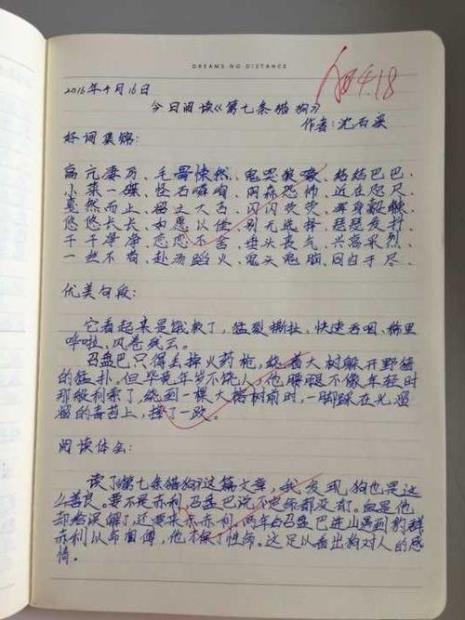 DREAMS NO DISTANCE
2016年4月16日
今日阅读《第七条猎狗》
作者:沈石溪
好词集锦:
高亢凄厉、毛骨悚然、鬼哭狼嚎、结结巴巴、
小菜一碟、怪石嶙峋、阴森恐怖、近在咫尺、
戛然而止、闪闪烁烁、浑身颤
悠悠长长、如愿以偿、别无选择、琵琶反打、
千千净净、恋恋不舍、垂头丧气、兴高采烈、
赴汤蹈火、鬼头鬼脑、同归于尽、
优美句段:
它看起来是饿极了,猛烈撕扯、快速吞咽、稀里
哗啦、风卷残云。
召盘巴只得丢掉火药枪,绕着大树躲开野猪
的猛扑,但毕竟年岁不饶人,他腰腿不像年轻时
那般利索了,绕到一棵大榕树前时,一脚踩在光溜
溜的青苔上,摔了一跤。
阅读体会:
读了《第七条猎狗》这篇文章,我发现狗也是这
么善良。要不是赤利,召盘巴说不定命都没有。但是他
却给误解了,还要杀赤利,两年后召盘巴进山遇到豹群
赤利以命相博,他才保了性命。这足以看出狗对人的感
情。
4.18